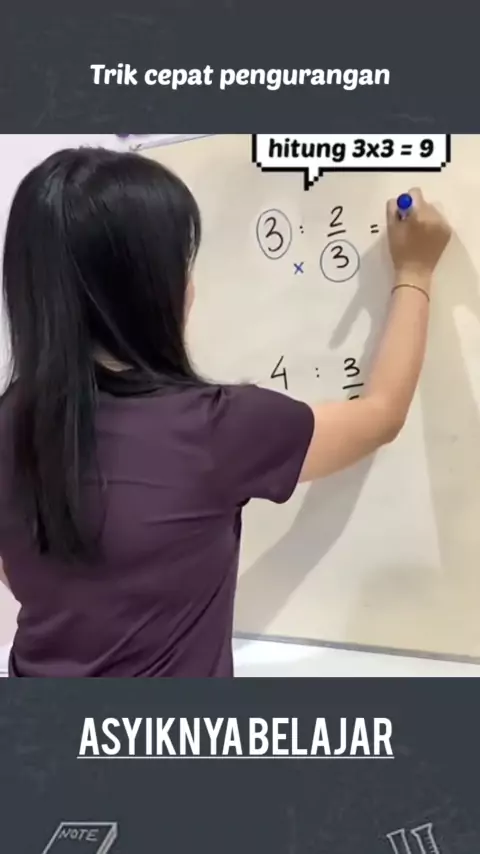 Trik cepat pengurangan
hitung 3x3 = 9
3 : 2/3 =
x
4 : 3
ASYIKNYA BELAJAR
NOTE